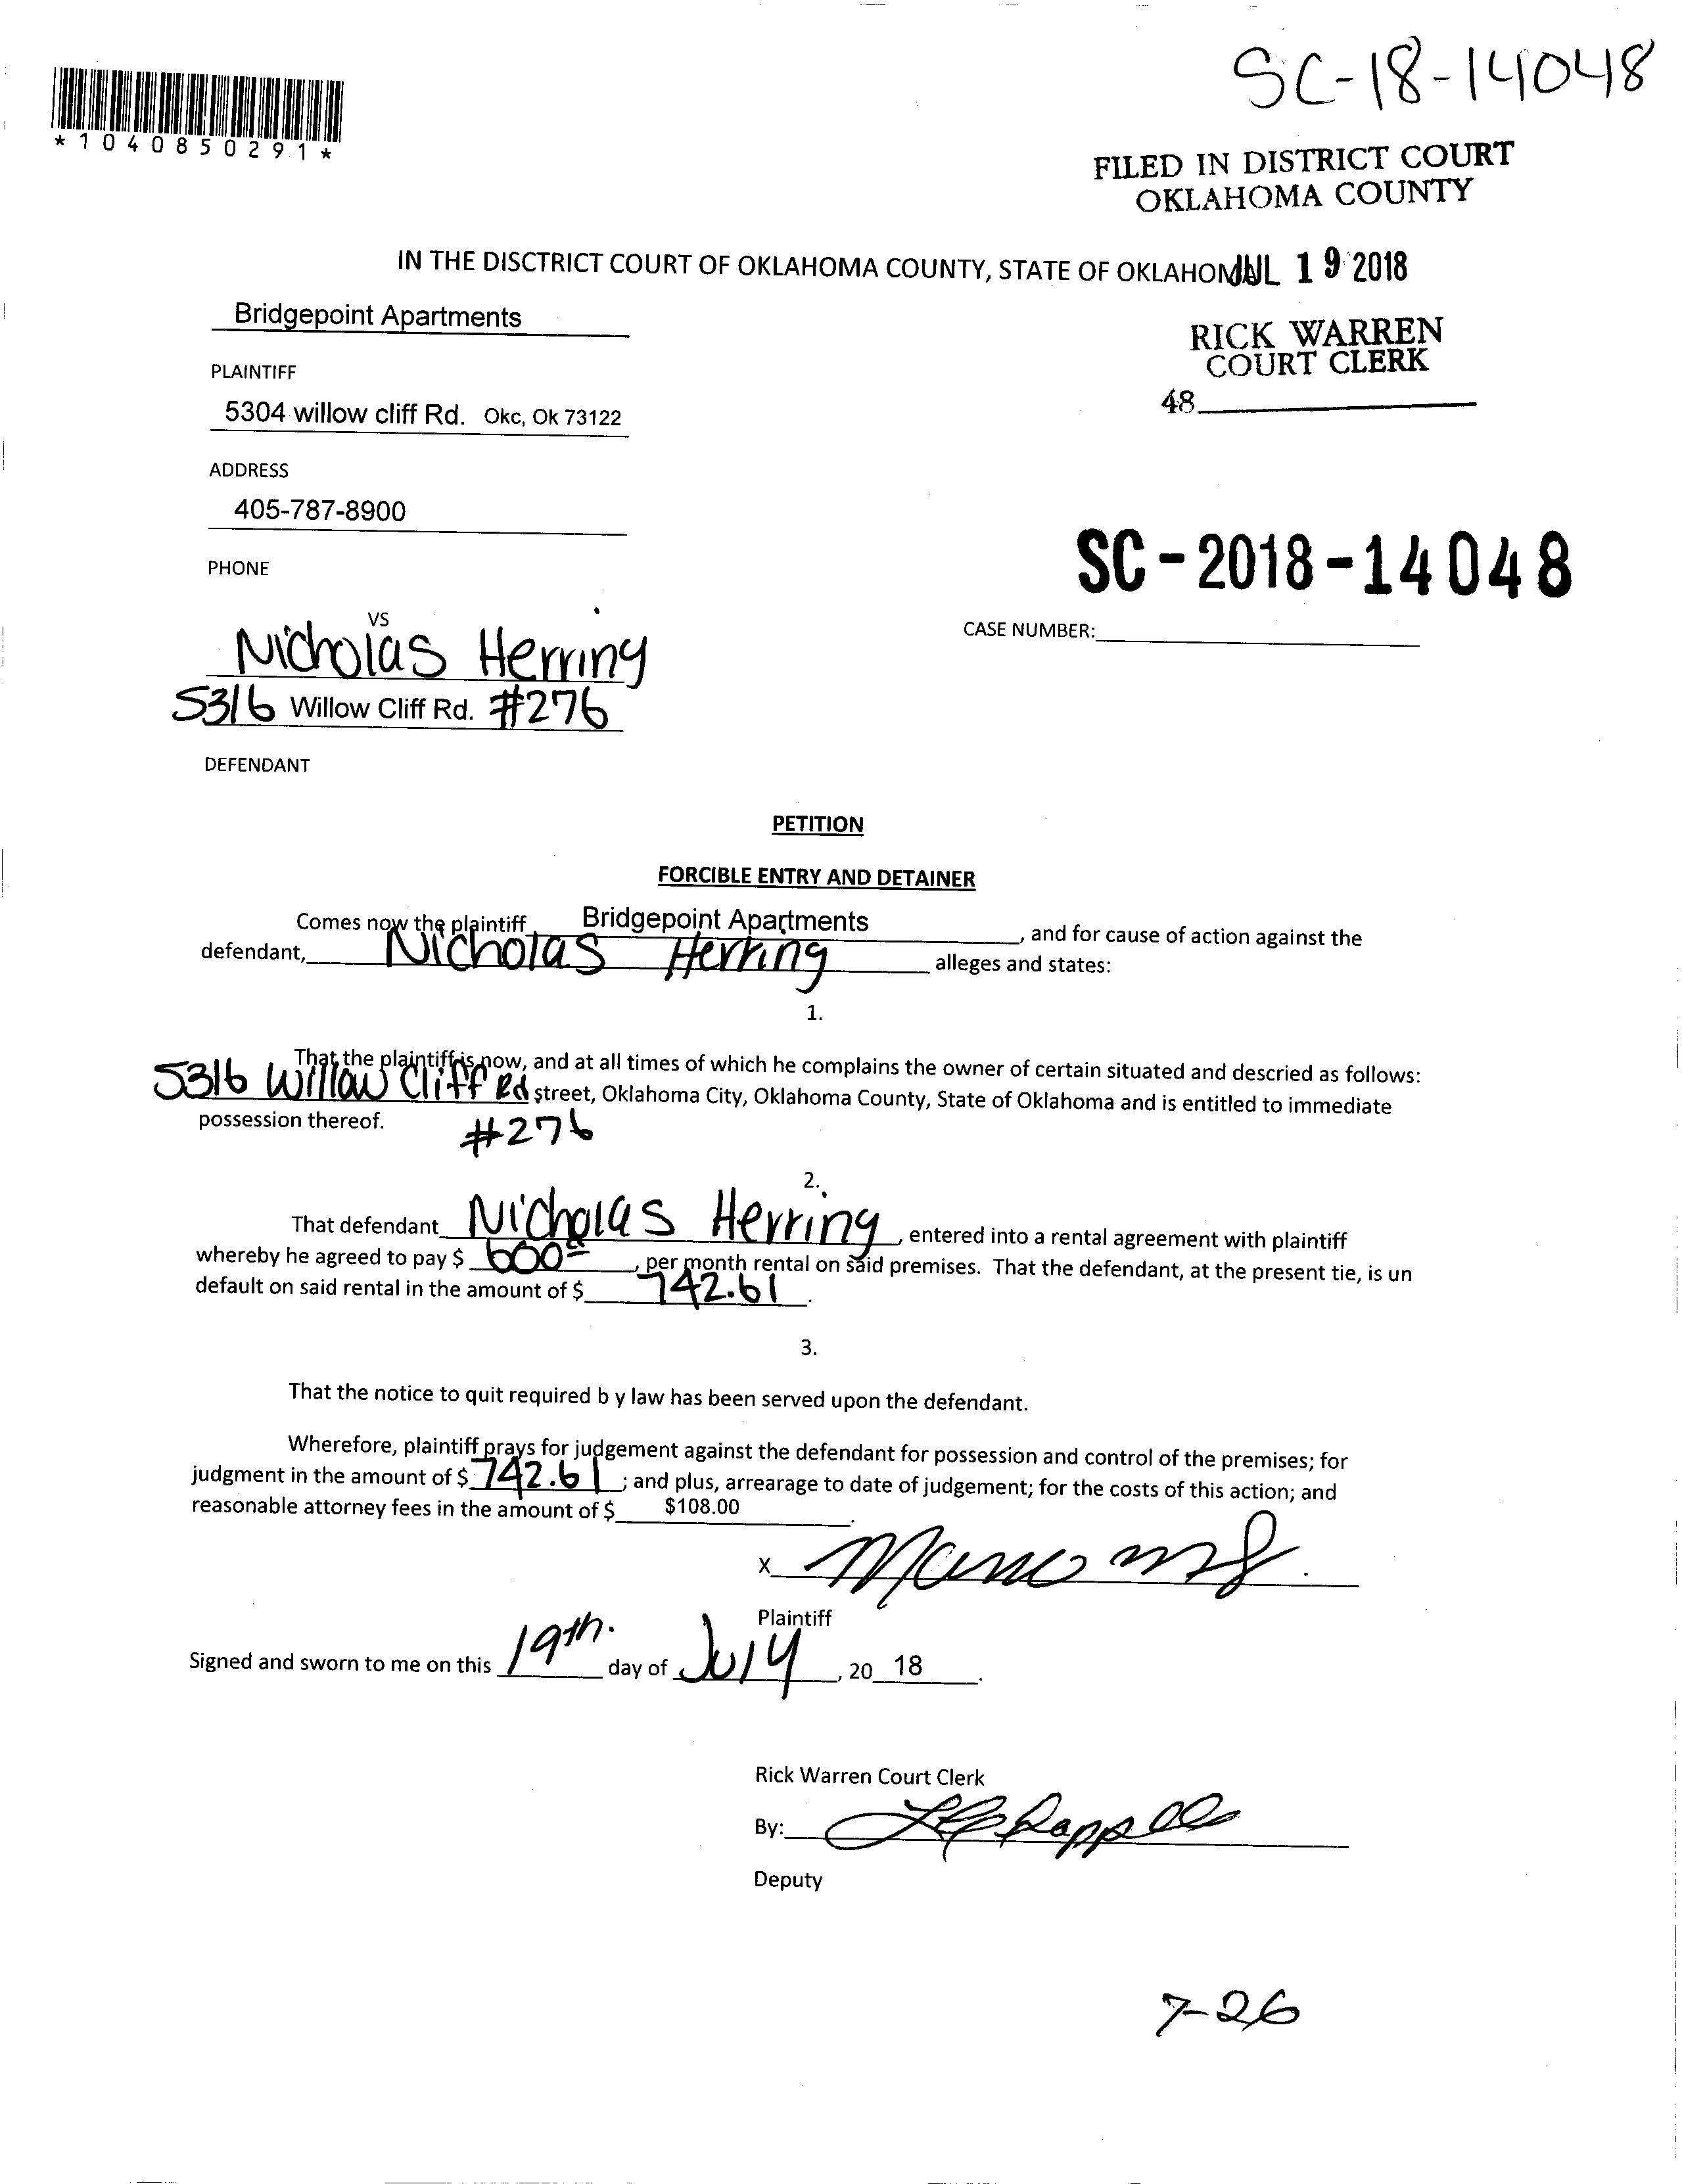 SC-18-14048
*1040850291*
FILED IN DISTRICT COURT
OKLAHOMA COUNTY
IN THE DISCTRICT COURT OF OKLAHOMA COUNTY, STATE OF OKLAHOM
JUL 19 2018
Bridgepoint Apartments
RICK WARREN
COURT CLERK
PLAINTIFF
48
5304 willow cliff Rd. Okc, Ok 73122
ADDRESS
405-787-8900
PHONE
SC-2018-14048
CASE NUMBER:
VS
Nicholas Herring
5316 Willow Cliff Rd. #276
DEFENDANT
PETITION
FORCIBLE ENTRY AND DETAINER
Comes now the plaintiff Bridgepoint Apartments, and for cause of action against the
defendant, Nicholas Herring alleges and states:
1.
That the plaintiff is now, and at all times of which he complains the owner of certain situated and descried as follows:
5316 Willow Cliff Rd street, Oklahoma City, Oklahoma County, State of Oklahoma and is entitled to immediate
possession thereof. #276
2.
That defendant Nicholas Herring, entered into a rental agreement with plaintiff
whereby he agreed to pay $ 600, per month rental on said premises. That the defendant, at the present tie, is un
default on said rental in the amount of $ 742.61.
3.
That the notice to quit required b y law has been served upon the defendant.
Wherefore, plaintiff prays for judgement against the defendant for possession and control of the premises; for
judgment in the amount of $ 742.61; and plus, arrearage to date of judgement; for the costs of this action; and
reasonable attorney fees in the amount of $ $108.00.
X
Plaintiff
Signed and sworn to me on this 19th. day of July, 20 18.
Rick Warren Court Clerk
By:
Deputy
7-26